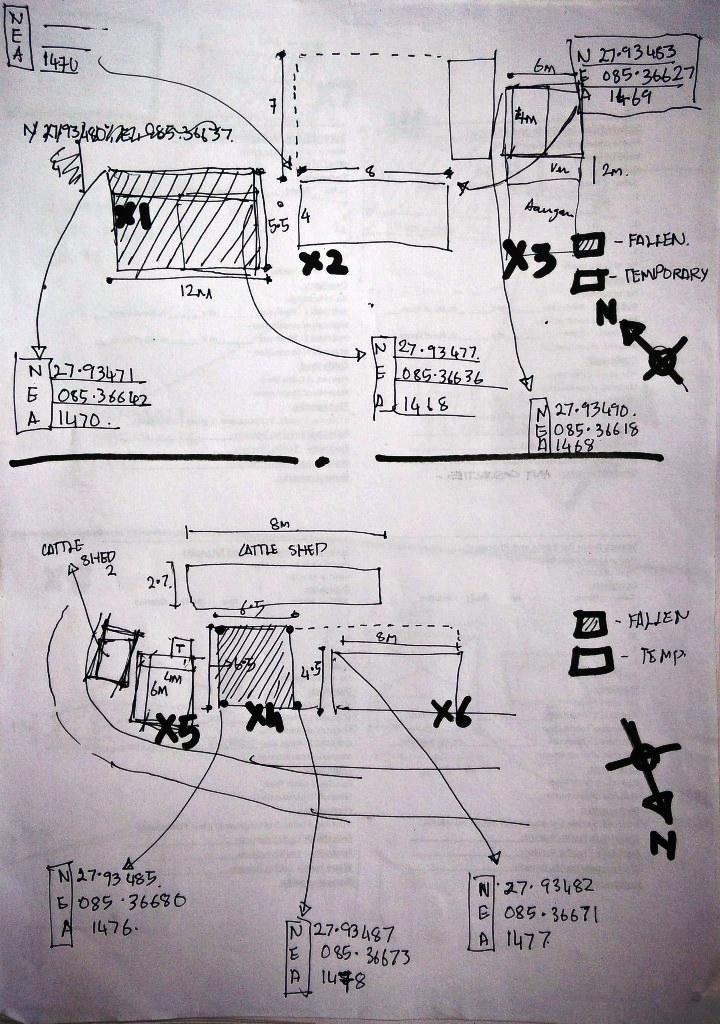 N
E
A 1470
7
6m
N 27.93483
E 085.36627
A 1469
4m
8
Ver
2m.
Aangan
X1
5.5
4
X2
X3
- FALLEN.
- TEMPORARY
12m
N
N 27.93471
E 085.36642
A 1470.
N 27.93477.
E 085.36636
A 1468
N 27.93490.
E 085.36618
A 1468
8m
CATTLE SHED
CATTLE
SHED
2
2.7.
6.5
- FALLEN
- TEMP.
T
4m
6m
6.5
4.5
8m
X5
X4
X6
N
N 27.93485.
E 085.36680
A 1476.
N 27.93487
E 085.36673
A 1478
N 27.93482
E 085.36671
A 1477